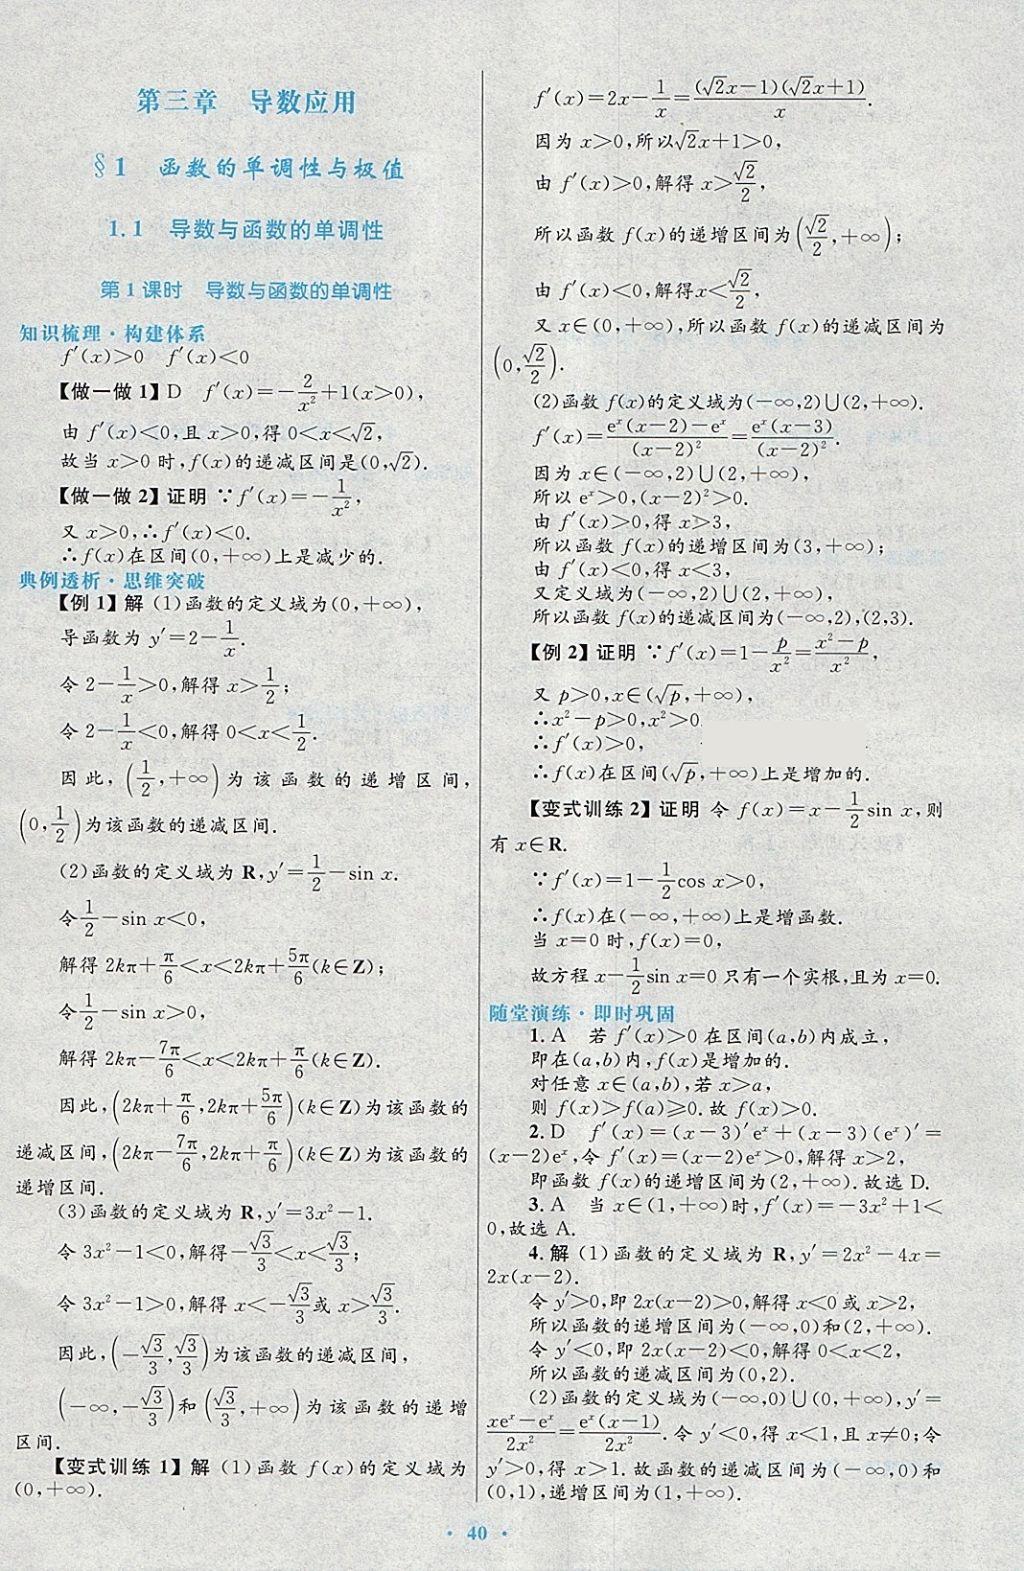 第三章 导数应用
§1 函数的单调性与极值
1.1 导数与函数的单调性
第1课时 导数与函数的单调性
知识梳理·构建体系
f′(x)>0 f′(x)<0
【做一做1】D f′(x)=-2/x²+1(x>0),
由 f′(x)<0,且 x>0,得 0<x<√2,
故当 x>0时,f(x)的递减区间是(0,√2).
【做一做2】证明 ∵f′(x)=-1/x²,
又 x>0,∴f′(x)<0.
∴f(x)在区间(0,+∞)上是减少的.
典例透析·思维突破
【例1】解 (1)函数的定义域为(0,+∞),
导函数为 y′=2-1/x.
令 2-1/x>0,解得 x>1/2;
令 2-1/x<0,解得 0<x<1/2.
因此,(1/2,+∞)为该函数的递增区间,
(0,1/2)为该函数的递减区间.
(2)函数的定义域为 R,y′=1/2-sin x.
令1/2-sin x<0,
解得 2kπ+π/6<x<2kπ+5π/6(k∈Z);
令1/2-sin x>0,
解得 2kπ-7π/6<x<2kπ+π/6(k∈Z).
因此,(2kπ+π/6,2kπ+5π/6)(k∈Z)为该函数的
递减区间,(2kπ-7π/6,2kπ+π/6)(k∈Z)为该函数的
递增区间.
(3)函数的定义域为 R,y′=3x²-1.
令 3x²-1<0,解得-√3/3<x<√3/3;
令 3x²-1>0,解得 x<-√3/3或 x>√3/3.
因此,(-√3/3,√3/3)为该函数的递减区间,
(-∞,-√3/3)和(√3/3,+∞)为该函数的递增
区间.
【变式训练1】解 (1)函数 f(x)的定义域为
(0,+∞).
f′(x)=2x-1/x=(√2x-1)(√2x+1)/x.
因为 x>0,所以√2x+1>0.
由 f′(x)>0,解得 x>√2/2,
所以函数 f(x)的递增区间为(√2/2,+∞);
由 f′(x)<0,解得x<√2/2,
又 x∈(0,+∞),所以函数 f(x)的递减区间为
(0,√2/2).
(2)函数 f(x)的定义域为(-∞,2)∪(2,+∞).
f′(x)=eˣ(x-2)-eˣ/(x-2)²=eˣ(x-3)/(x-2)².
因为 x∈(-∞,2)∪(2,+∞),
所以 eˣ>0,(x-2)²>0.
由 f′(x)>0,得 x>3,
所以函数 f(x)的递增区间为(3,+∞);
由 f′(x)<0,得 x<3,
又定义域为(-∞,2)∪(2,+∞),
所以函数 f(x)的递减区间为(-∞,2),(2,3).
【例2】证明 ∵f′(x)=1-p/x²=x²-p/x²,
又 p>0,x∈(√p,+∞),
∴x²-p>0,x²>0
∴f′(x)>0,
∴f(x)在区间(√p,+∞)上是增加的.
【变式训练2】证明 令 f(x)=x-1/2sin x,则
有 x∈R.
∵f′(x)=1-1/2cos x>0,
∴f(x)在(-∞,+∞)上是增函数.
当 x=0时,f(x)=0,
故方程 x-1/2sin x=0只有一个实根,且为 x=0.
随堂演练·即时巩固
1.A 若 f′(x)>0在区间(a,b)内成立,
即在(a,b)内,f(x)是增加的.
对任意 x∈(a,b),若 x>a,
则 f(x)>f(a)≥0.故 f(x)>0.
2.D f′(x)=(x-3)′eˣ+(x-3)(eˣ)′=
(x-2)eˣ,令 f′(x)=(x-2)eˣ>0,解得 x>2,
即函数 f(x)的递增区间为(2,+∞).故选 D.
3.A 当 x∈(1,+∞)时,f′(x)=-3x²+1<
0,故选 A.
4.解 (1)函数的定义域为 R,y′=2x²-4x=
2x(x-2).
令 y′>0,即 2x(x-2)>0,解得 x<0或 x>2,
所以函数的递增区间为(-∞,0)和(2,+∞).
令 y′<0,即 2x(x-2)<0,解得 0<x<2,
所以函数的递减区间为(0,2).
(2)函数的定义域为(-∞,0)∪(0,+∞),y′=
xeˣ-eˣ/2x²=eˣ(x-1)/2x².令 y′<0,得 x<1,且 x≠0;令
y′>0,得 x>1.故函数的递减区间为(-∞,0)和
(0,1),递增区间为(1,+∞).
·40·